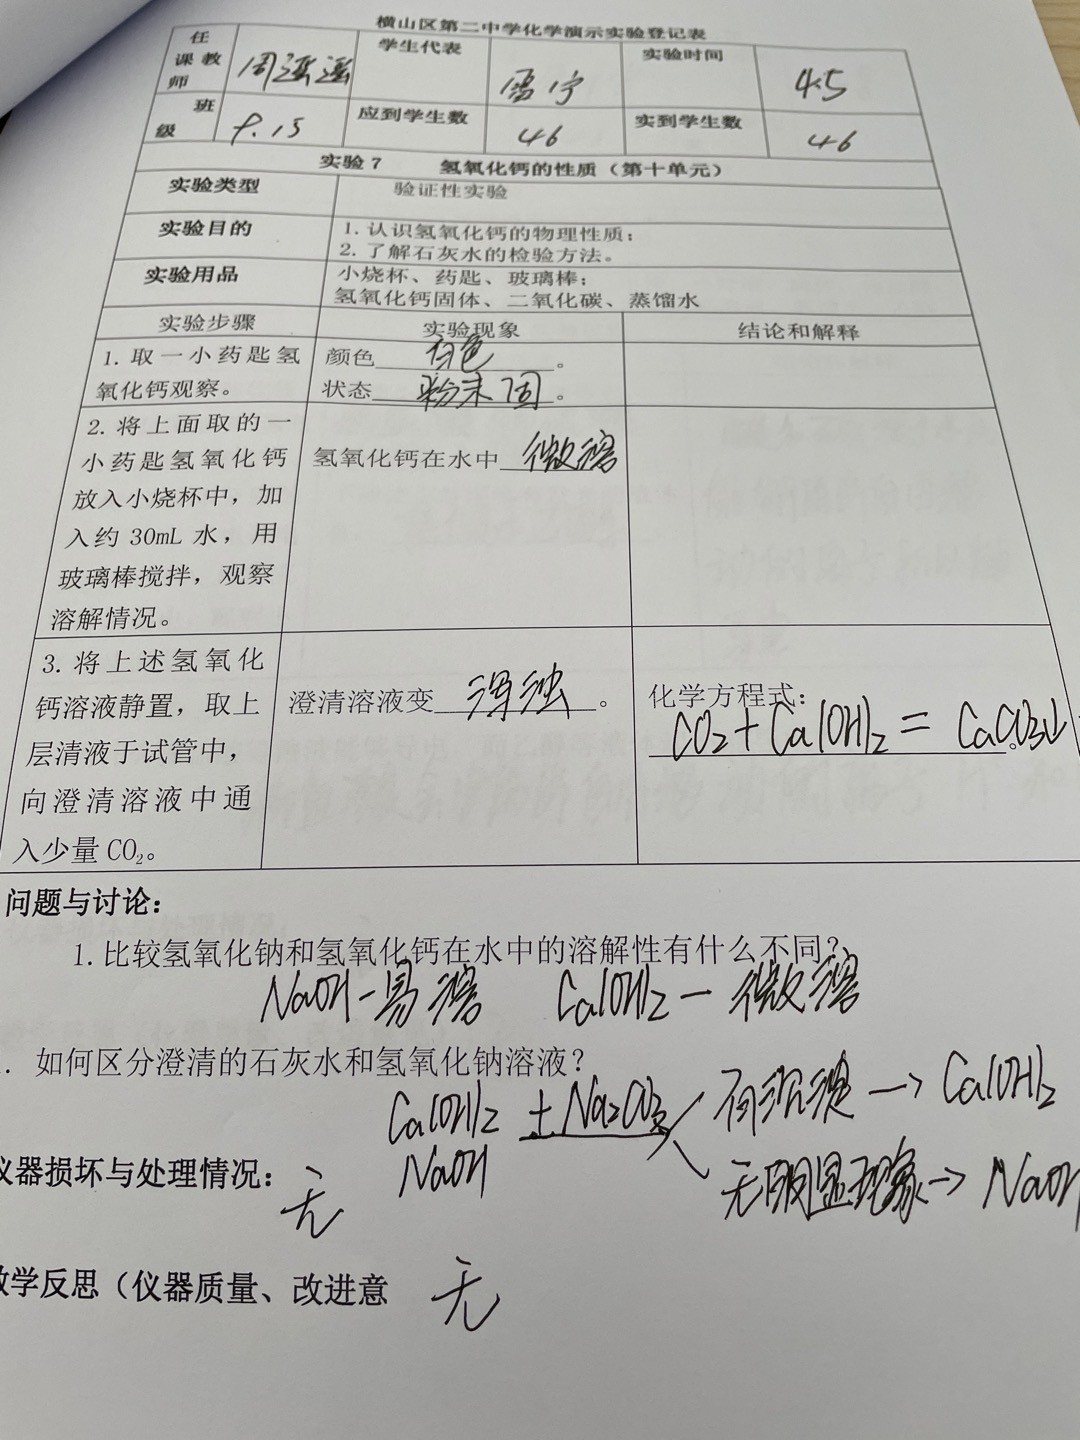 横山区第二中学化学演示实验登记表
任课教师 周遥遥 学生代表 雷宁 实验时间 4.5
班级 9.15 应到学生数 46 实到学生数 46
实验7 氢氧化钙的性质（第十单元）
实验类型 验证性实验
实验目的 1. 认识氢氧化钙的物理性质；
2. 了解石灰水的检验方法。
实验用品 小烧杯、药匙、玻璃棒；
氢氧化钙固体、二氧化碳、蒸馏水
实验步骤 实验现象 结论和解释
1. 取一小药匙氢 颜色 白色 。
氧化钙观察。 状态 粉末固 。
2. 将上面取的一
小药匙氢氧化钙 氢氧化钙在水中 微溶
放入小烧杯中，加
入约 30mL 水，用
玻璃棒搅拌，观察
溶解情况。
3. 将上述氢氧化
钙溶液静置，取上 澄清溶液变 浑浊 。 化学方程式：
层清液于试管中， CO₂+Ca(OH)₂=CaCO₃↓ 。
向澄清溶液中通
入少量 CO₂。
问题与讨论：
1. 比较氢氧化钠和氢氧化钙在水中的溶解性有什么不同？
NaOH-易溶 Ca(OH)₂-微溶
. 如何区分澄清的石灰水和氢氧化钠溶液？
Ca(OH)₂ +Na₂CO₃ 有沉淀→Ca(OH)₂
NaOH 无明显现象→NaOH
仪器损坏与处理情况：
无
教学反思（仪器质量、改进意 无